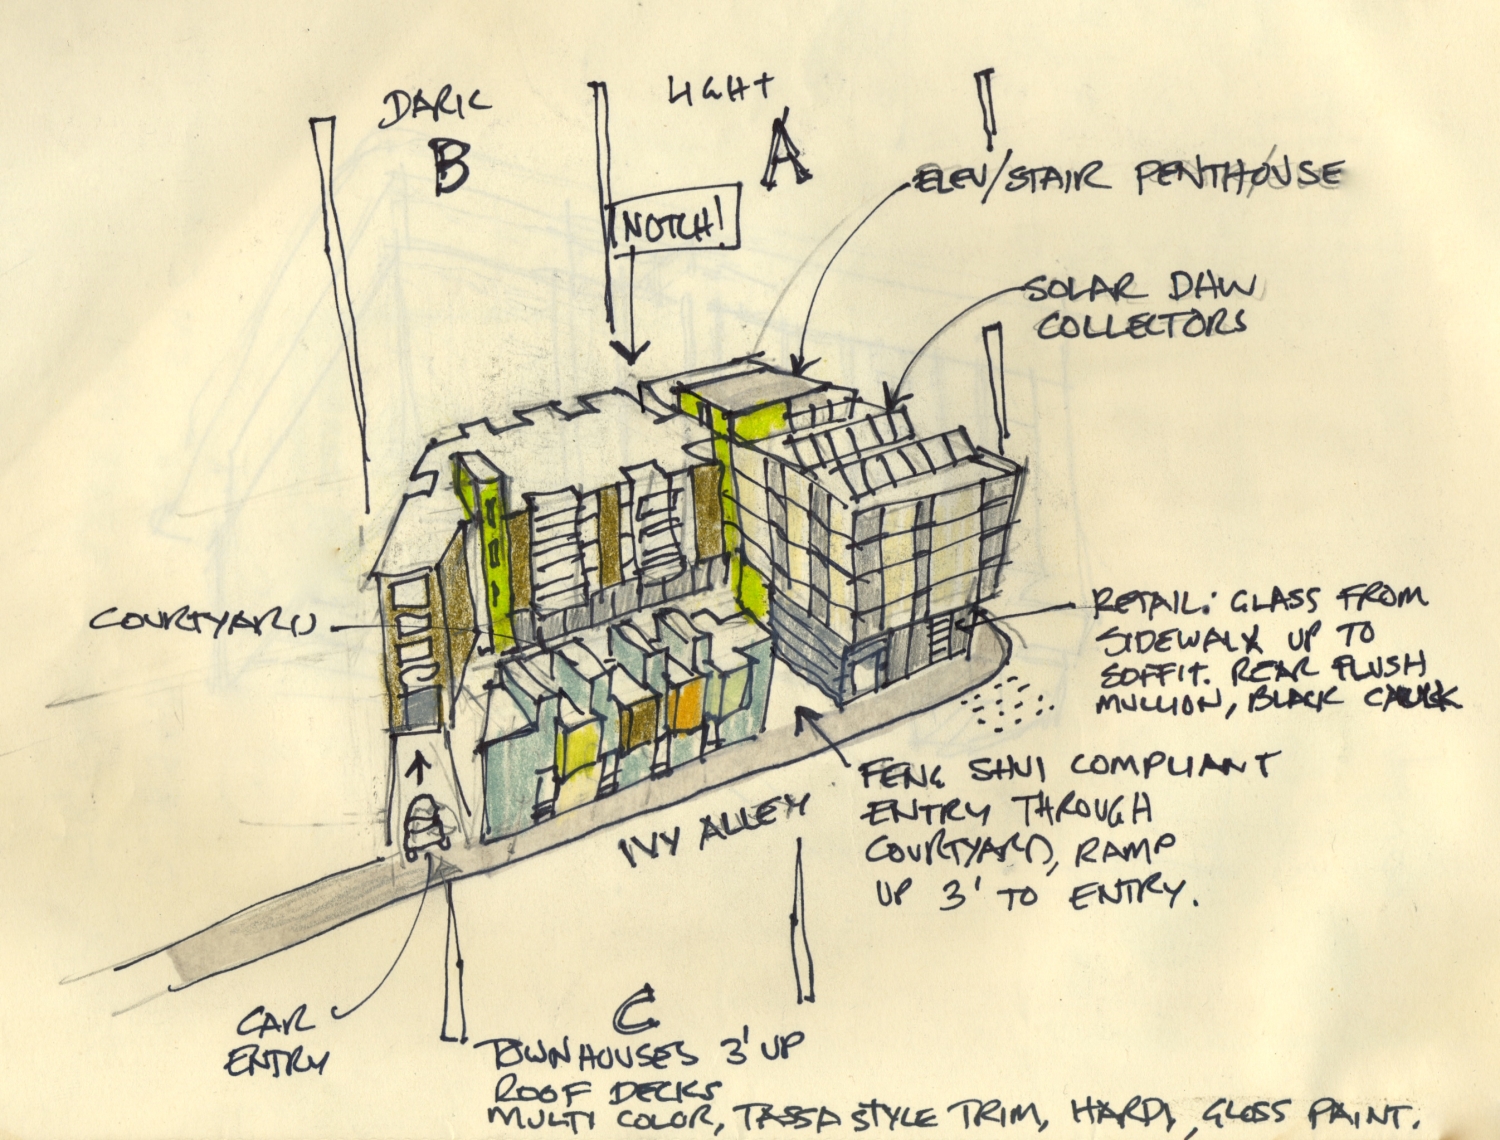 DARK
B
LIGHT
A
NOTCH!
ELEV/STAIR PENTHOUSE
SOLAR DHW
COLLECTORS
COURTYARD
RETAIL: GLASS FROM
SIDEWALK UP TO
SOFFIT. REAR FLUSH
MULLION, BLACK CAULK
FENG SHUI COMPLIANT
ENTRY THROUGH
COURTYARD, RAMP
UP 3' TO ENTRY.
IVY ALLEY
CAR
ENTRY
C
TOWNHOUSES 3' UP
ROOF DECKS
MULTI COLOR, STYLE TRIM, HARDI, GLOSS PAINT.